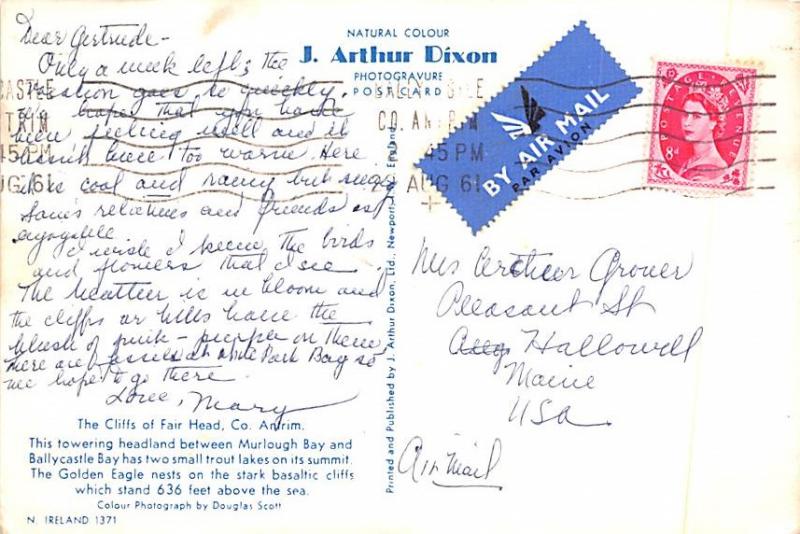 Dear Gertrude -
Only a week left & the
vacation goes so quickly.
We hope that you have
been feeling well and it
hasn't been too warm. Here
it is cool and rainy but seeing
Sam's relatives and friends is
enjoyable.
I wish I knew the birds
and flowers that I see.
The heather is in bloom and
the cliffs or hills have the
blush of pink - purple on them,
There are fossils at White Park Bay so
we hope to go there.
Love, Mary
The Cliffs of Fair Head, Co. Antrim.
This towering headland between Murlough Bay and
Ballycastle Bay has two small trout lakes on its summit.
The Golden Eagle nests on the stark basaltic cliffs
which stand 636 feet above the sea.
Colour Photograph by Douglas Scott
N. IRELAND 1371
NATURAL COLOUR
J. Arthur Dixon
PHOTOGRAVURE
POSTCARD
Printed and Published by J. Arthur Dixon, Ltd., Newport, England.
BY AIR MAIL
PAR AVION
POSTAGE REVENUE
8d
CASTLE
TRIM
45 PM
UG 61
CO. ANTRIM
45 PM
AUG 61
Mrs Arthur Grover
Pleasant St
Hallowell
Maine
USA
Air Mail